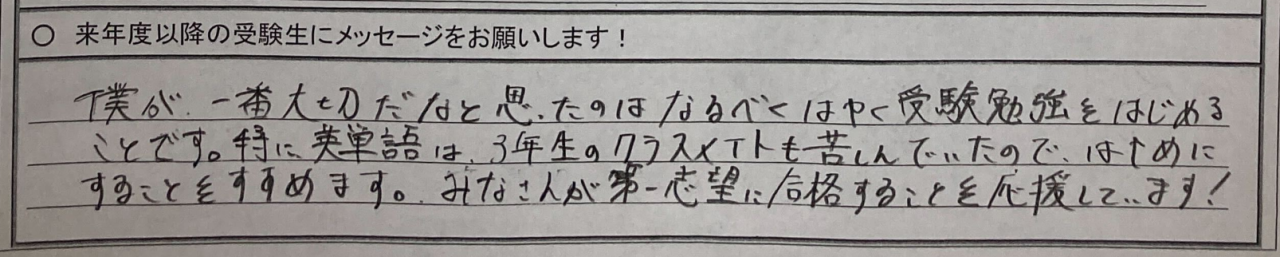 ○ 来年度以降の受験生にメッセージをお願いします！
僕が、一番大切だなと思ったのはなるべくはやく受験勉強をはじめる
ことです。特に英単語は、3年生のクラスメイトも苦しんでいたので、はやめに
することをすすめます。みなさんが第一志望に合格することを応援しています！